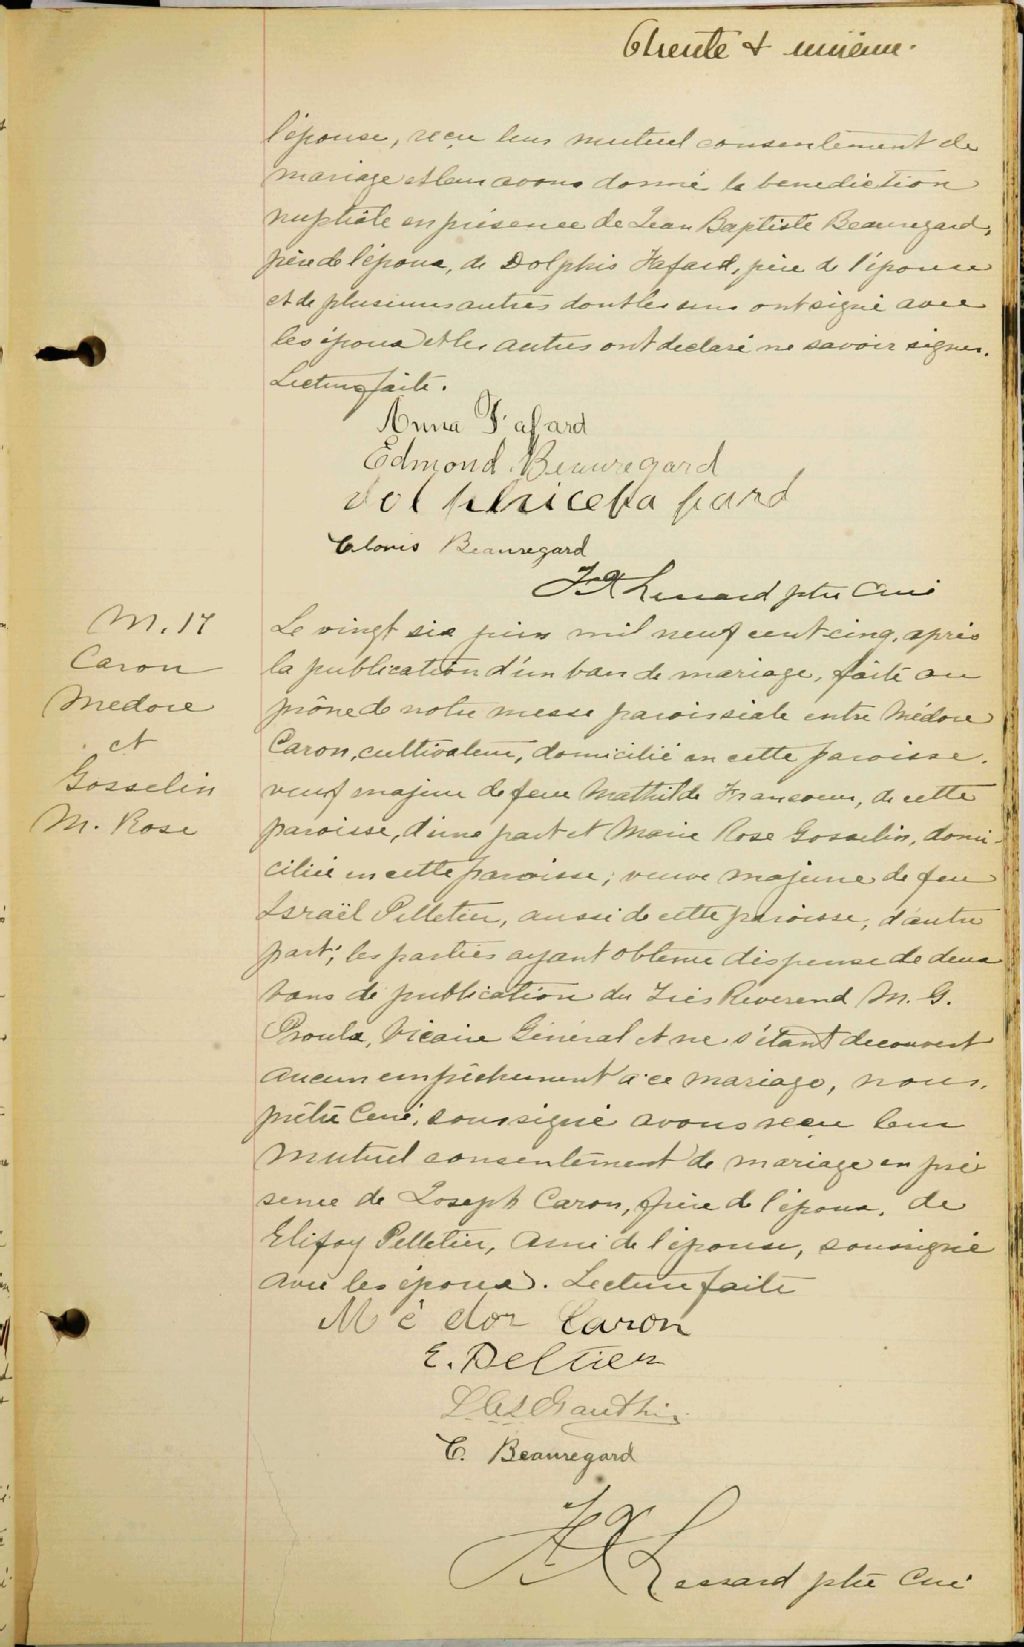 Trente & unième.
l'épouse, reçu leur mutuel consentement de
mariage et leur avons donné la benediction
nuptiale en présence de Jean Baptiste Beauregard,
père de l'époux, de Dolphis Fafard, père de l'épouse
et de plusieurs autres dont les uns ont signé avec
les époux et les autres ont declaré ne savoir signer.
Lecture faite.
Anna Fafard
Edmond Beauregard
dolphice fa fard
Clovis Beauregard
FX Lessard ptre Curé
M. 17
Caron
Medore
et
Gosselin
M. Rose
Le vingt six juin mil neuf cent cinq, après
la publication d'un ban de mariage, faite au
prône de notre messe paroissiale entre Médore
Caron, cultivateur, domicilié en cette paroisse,
veuf majeur de feue Mathilde Francoeur, de cette
paroisse, d'une part et Marie Rose Gosselin, domi-
ciliée en cette paroisse, veuve majeure de feu
Israël Pelletier, aussi de cette paroisse, d'autre
part; les parties ayant obtenu dispense de deux
bans de publication du Très Reverend M. G.
Proulx, Vicaire Général et ne s'étant decouvert
aucun empêchement à ce mariage, nous,
prêtre Curé, soussigné avons reçu leur
mutuel consentement de mariage en pré-
sence de Joseph Caron, frère de l'époux, de
Elifoy Pelletier, ami de l'épouse, soussigné
avec les époux. Lecture faite
Mé dor Caron
E. Peltier
Gauthier
C. Beauregard
FX Lessard ptre Curé